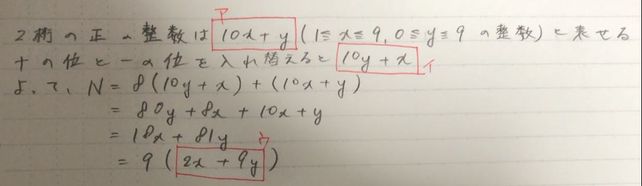 ア
2桁の正の整数は 10x+y (1≦x≦9, 0≦y≦9 の整数)と表せる
十の位と一の位を入れ替えると 10y+x イ
よって、N = 8(10y+x)+(10x+y)
= 80y+8x+10x+y
= 18x+81y ウ
= 9(2x+9y)